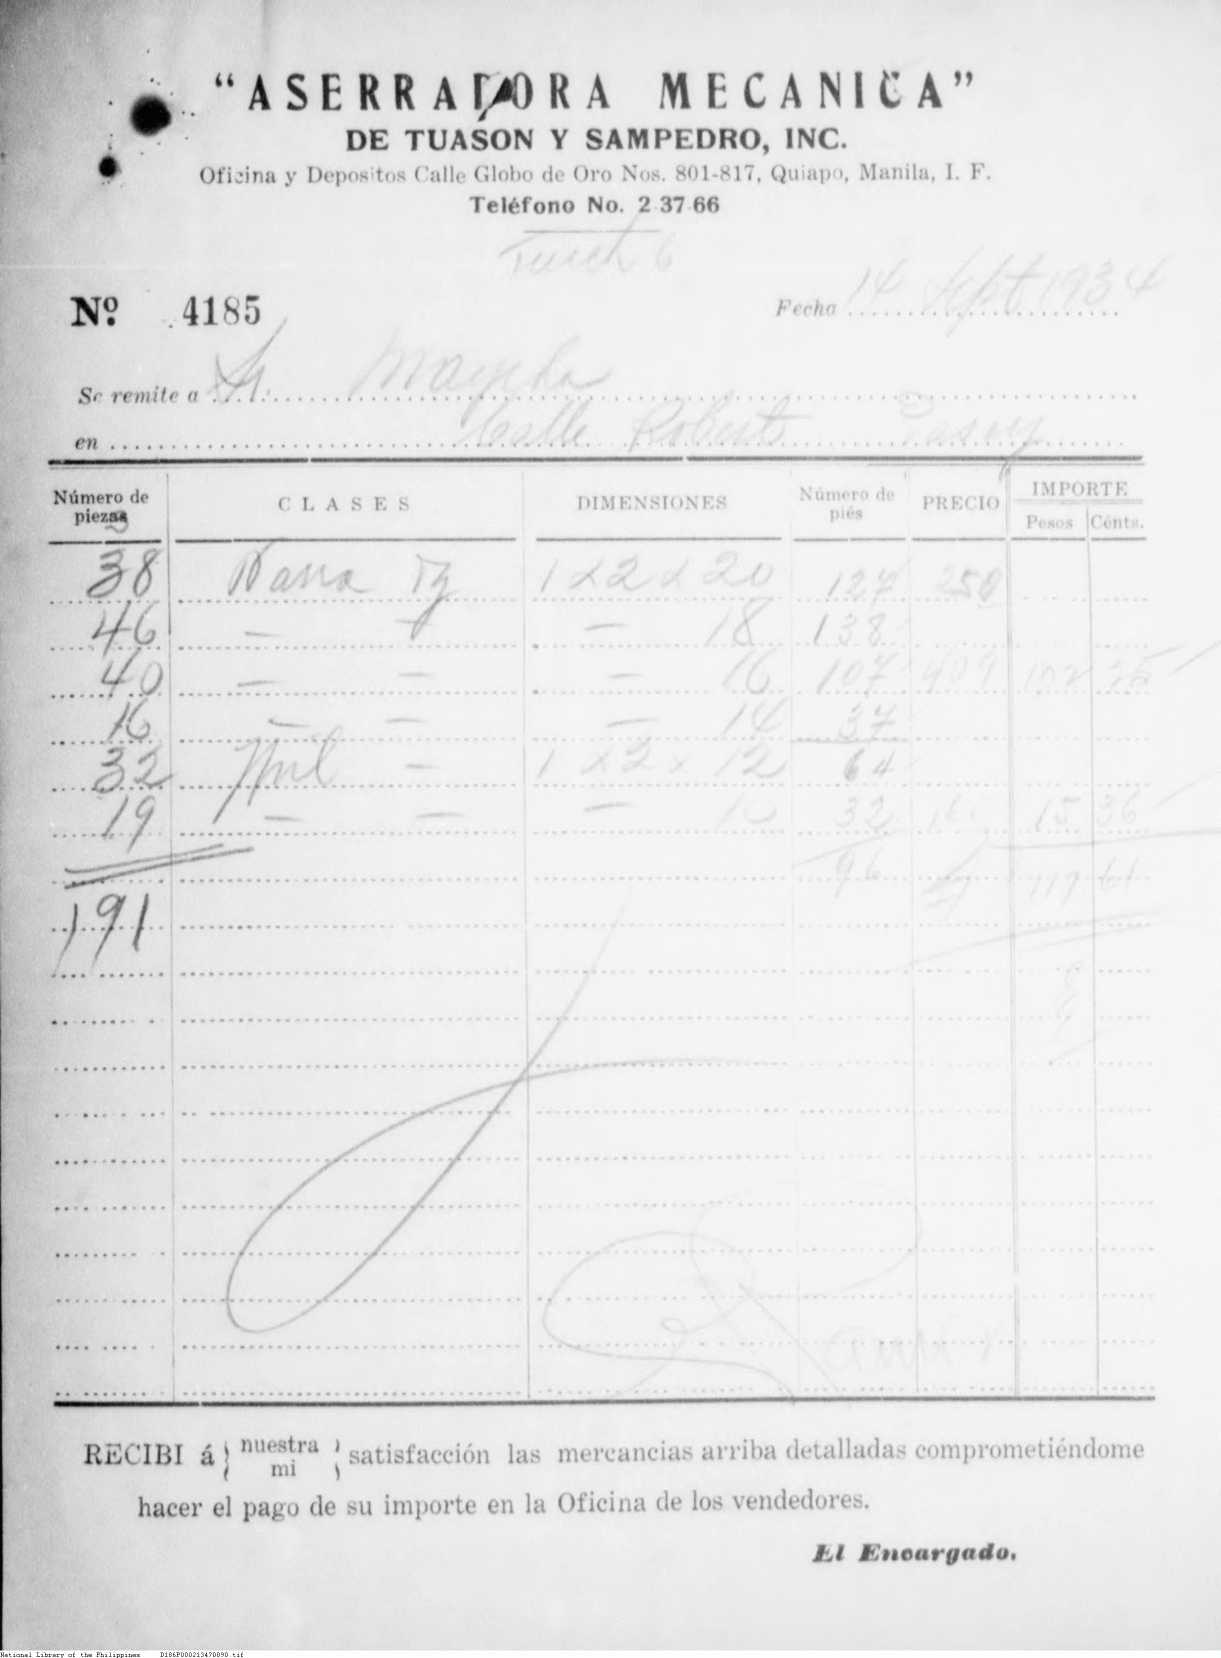 “ASERRADORA MECANICA”
DE TUASON Y SAMPEDRO, INC.
Oficina y Depositos Calle Globo de Oro Nos. 801-817, Quiapo, Manila, I. F.
Teléfono No. 2-37-66
6
Nº. 4185
Fecha 14 Sept 1934
Se remite a Sr.
en Calle Roberts Pasay
Número de piezas CLASES DIMENSIONES Número de piés PRECIO IMPORTE Pesos Cénts.
38 Narra 1 x 2 x 20 127 250
46 — — 18 138
40 — — — 16 107 409 102 25
16 — — — 14 37
32 — 1 x 2 x 12 64
19 — — — 10 32 15 36
96 117 61
191
RECIBI á { nuestra mi } satisfacción las mercancias arriba detalladas comprometiéndome
hacer el pago de su importe en la Oficina de los vendedores.
El Encargado.
National Library of the Philippines D186P000213470890.tif